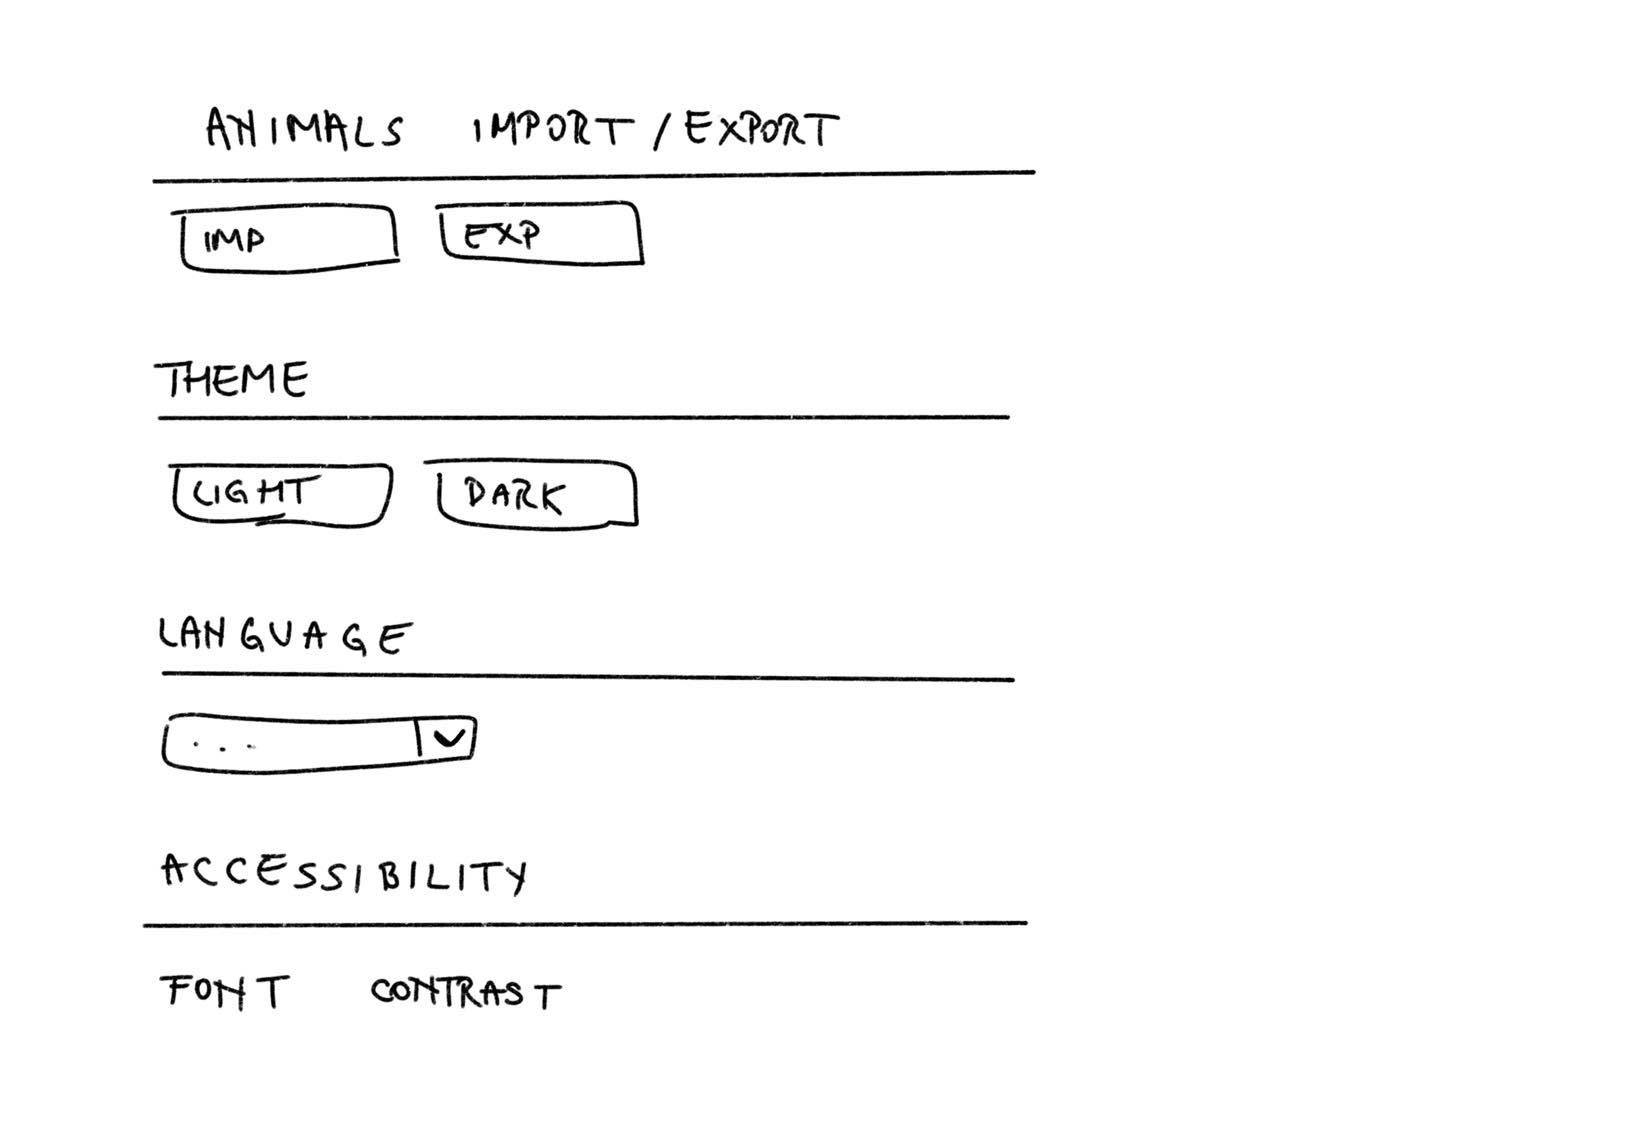 ANIMALS IMPORT / EXPORT
IMP EXP
THEME
LIGHT DARK
LANGUAGE
...
ACCESSIBILITY
FONT CONTRAST